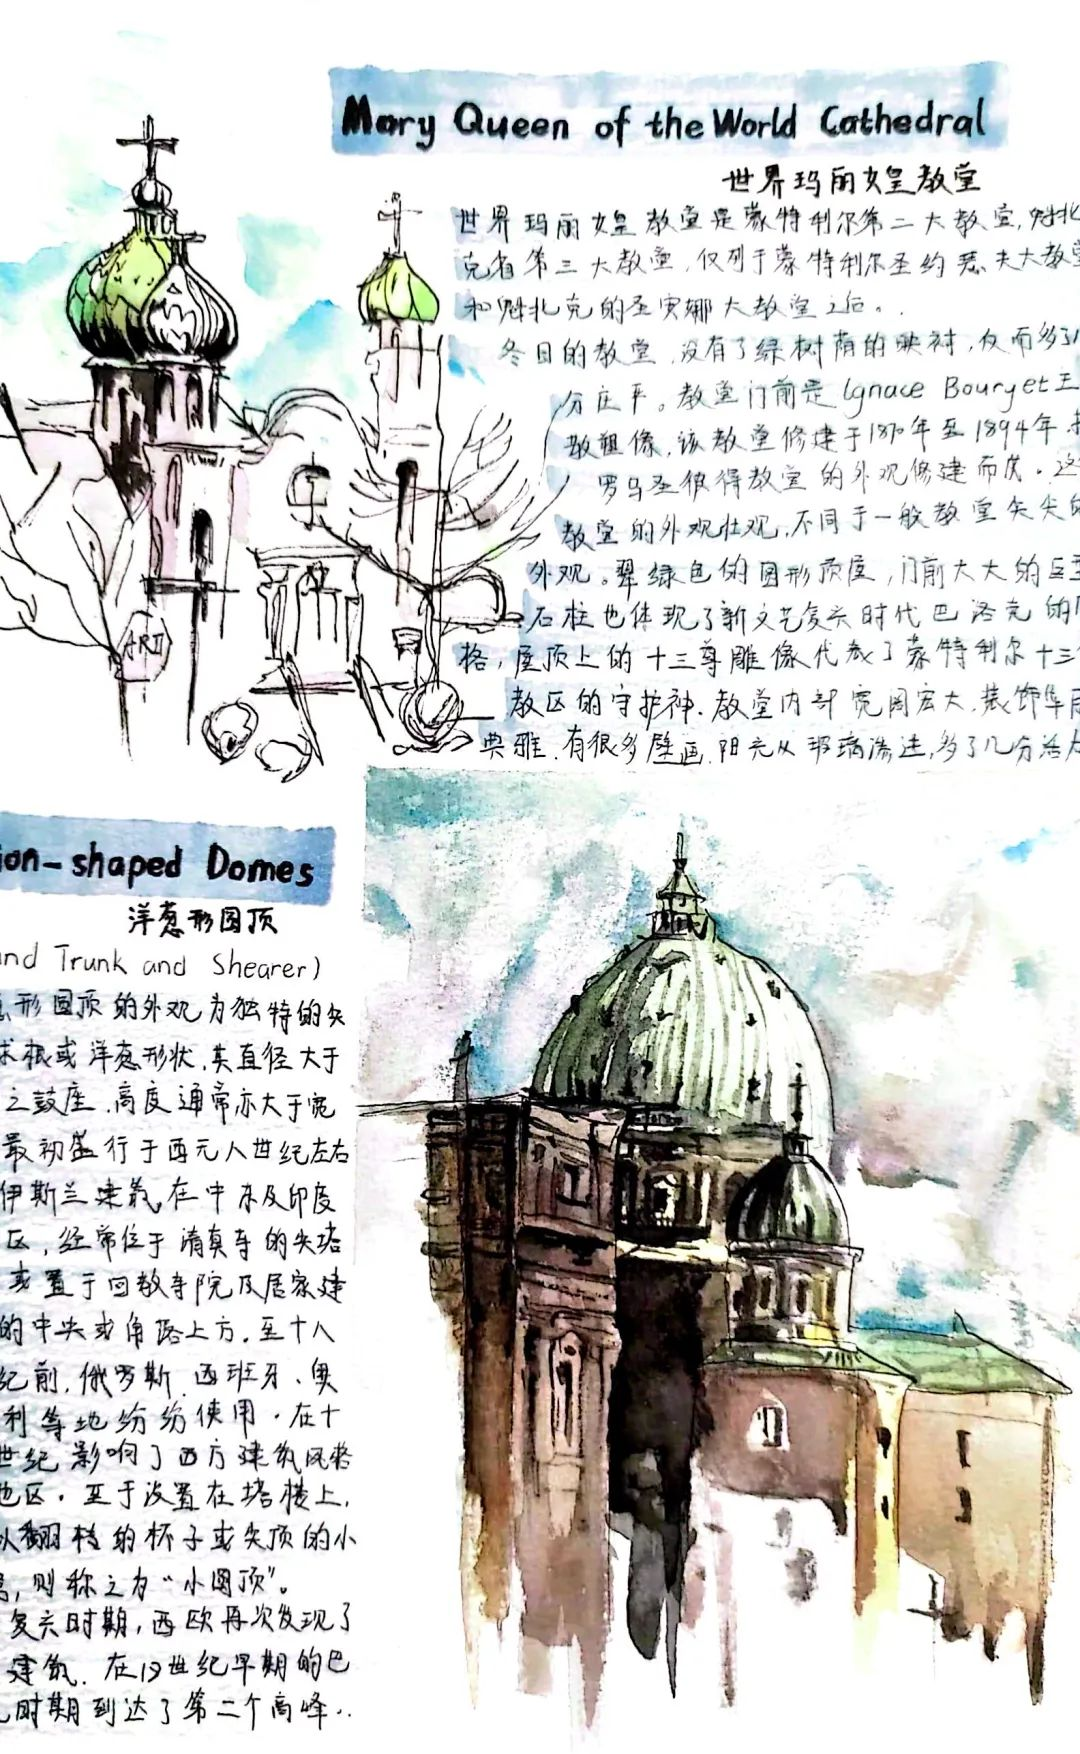 Mary Queen of the World Cathedral
世界玛丽女皇教堂
世界玛丽女皇教堂是蒙特利尔第二大教堂,魁北
克省第三大教堂,仅列于蒙特利尔圣约瑟夫大教堂
和魁北克的圣安娜大教堂之后。
冬日的教堂,没有了绿树荫的映衬,反而多了几
分庄严。教堂门前是Ignace Bourget主
教塑像,该教堂修建于1870年至1894年,
罗马圣彼得教堂的外观修建而成。这
教堂的外观壮观,不同于一般教堂尖尖的
外观。翠绿色的圆形顶座,门前大大的巨型
石柱也体现了新文艺复兴时代巴洛克的风
格,屋顶上的十三尊雕像代表了蒙特利尔十三个
教区的守护神.教堂内部宽阔宏大,装饰华丽
典雅.有很多壁画.阳光从玻璃渗进,多了几分活力
ARTI
ion-shaped Domes
洋葱形圆顶
and Trunk and Shearer)
形圆顶的外观为独特的尖
球根或洋葱形状,其直径大于
之鼓座,高度通常亦大于宽
最初盛行于西元八世纪左右
伊斯兰建筑,在中东及印度
区,经常位于清真寺的尖塔
或置于回教寺院及居家建
的中央或角落上方.至十八
纪前,俄罗斯、西班牙、奥
利等地纷纷使用.在十
世纪影响了西方建筑风格
地区.至于设置在塔楼上,
以翻转的杯子或尖顶的小
,则称之为"小圆顶"。
复兴时期,西欧再次发现了
建筑.在19世纪早期的巴
时期到达了第二个高峰..